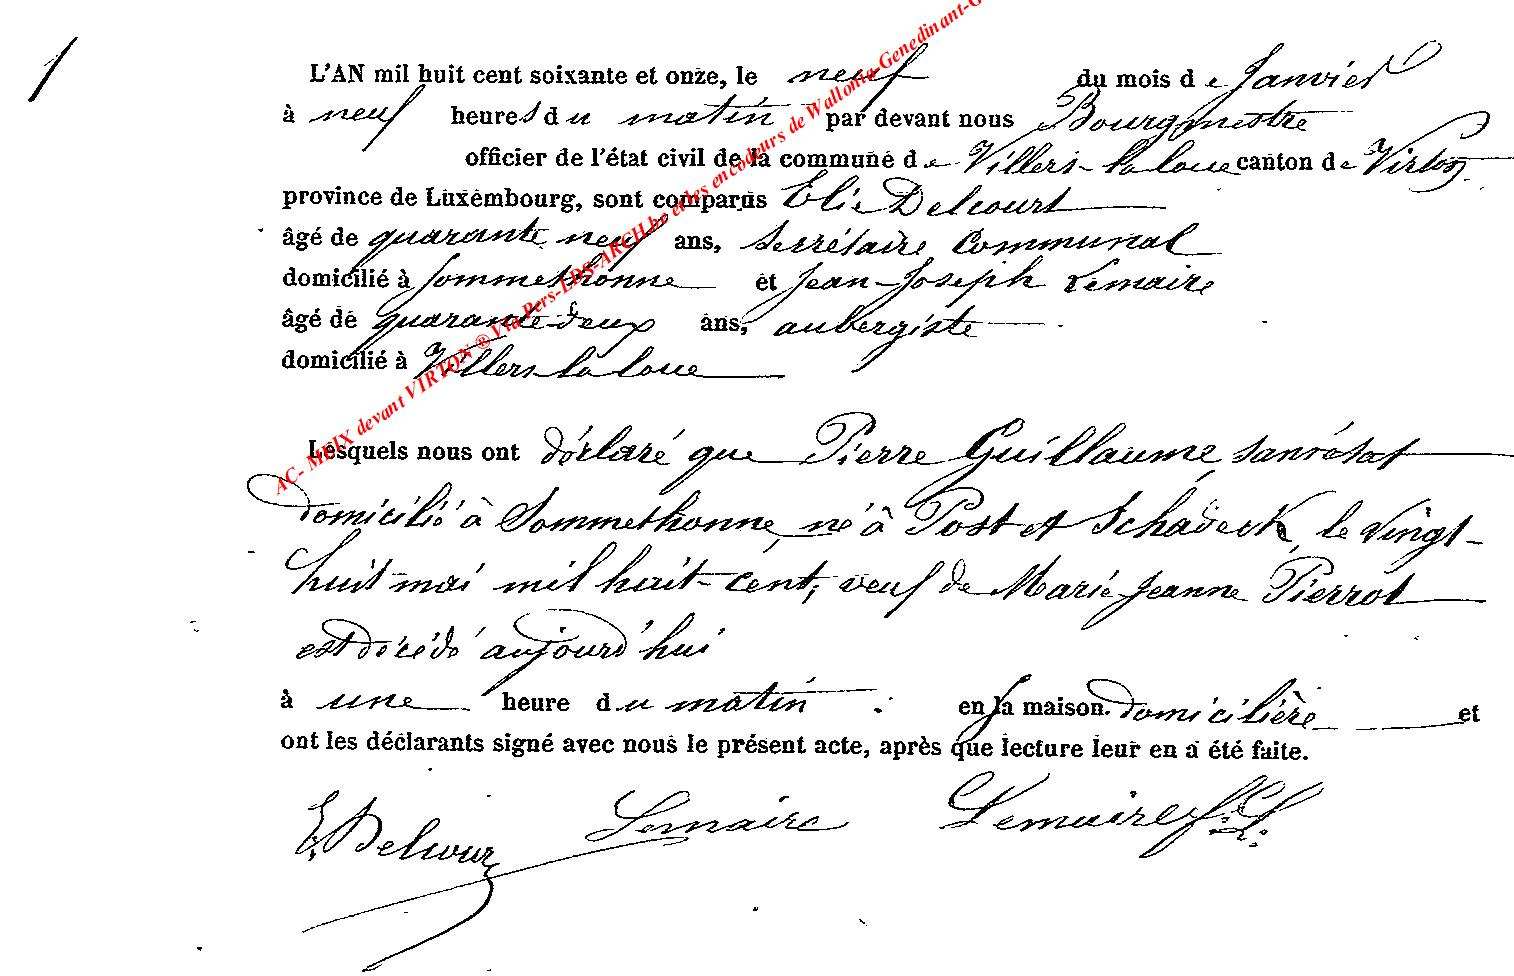 1
L'AN mil huit cent soixante et onze, le neuf du mois de Janvier
à neuf heures du matin par devant nous Bourgmestre
officier de l'état civil de la commune de Villers-la loue canton de Virton
province de Luxembourg, sont comparus Elie Delcourt
âgé de quarante neuf ans, secrétaire communal
domicilié à Sommethonne et Jean-Joseph Lemaire
âgé de quarante deux ans, aubergiste
domicilié à Villers-la loue
Lesquels nous ont déclaré que Pierre Guillaume, sans état
domicilié à Sommethonne, né à Post et Schadeck, le vingt-
huit mai mil huit-cent, veuf de Marie Jeanne Pierrot
est décédé aujourd'hui
à une heure du matin en la maison domicilière et
ont les déclarants signé avec nous le présent acte, après que lecture leur en a été faite.
E. Delcour Lemaire Lemaire
AC- MEIX devant VIRTON ® Via Pers-EDS-ARCH.be et les encodeurs de Wallonia-Genedinant-G